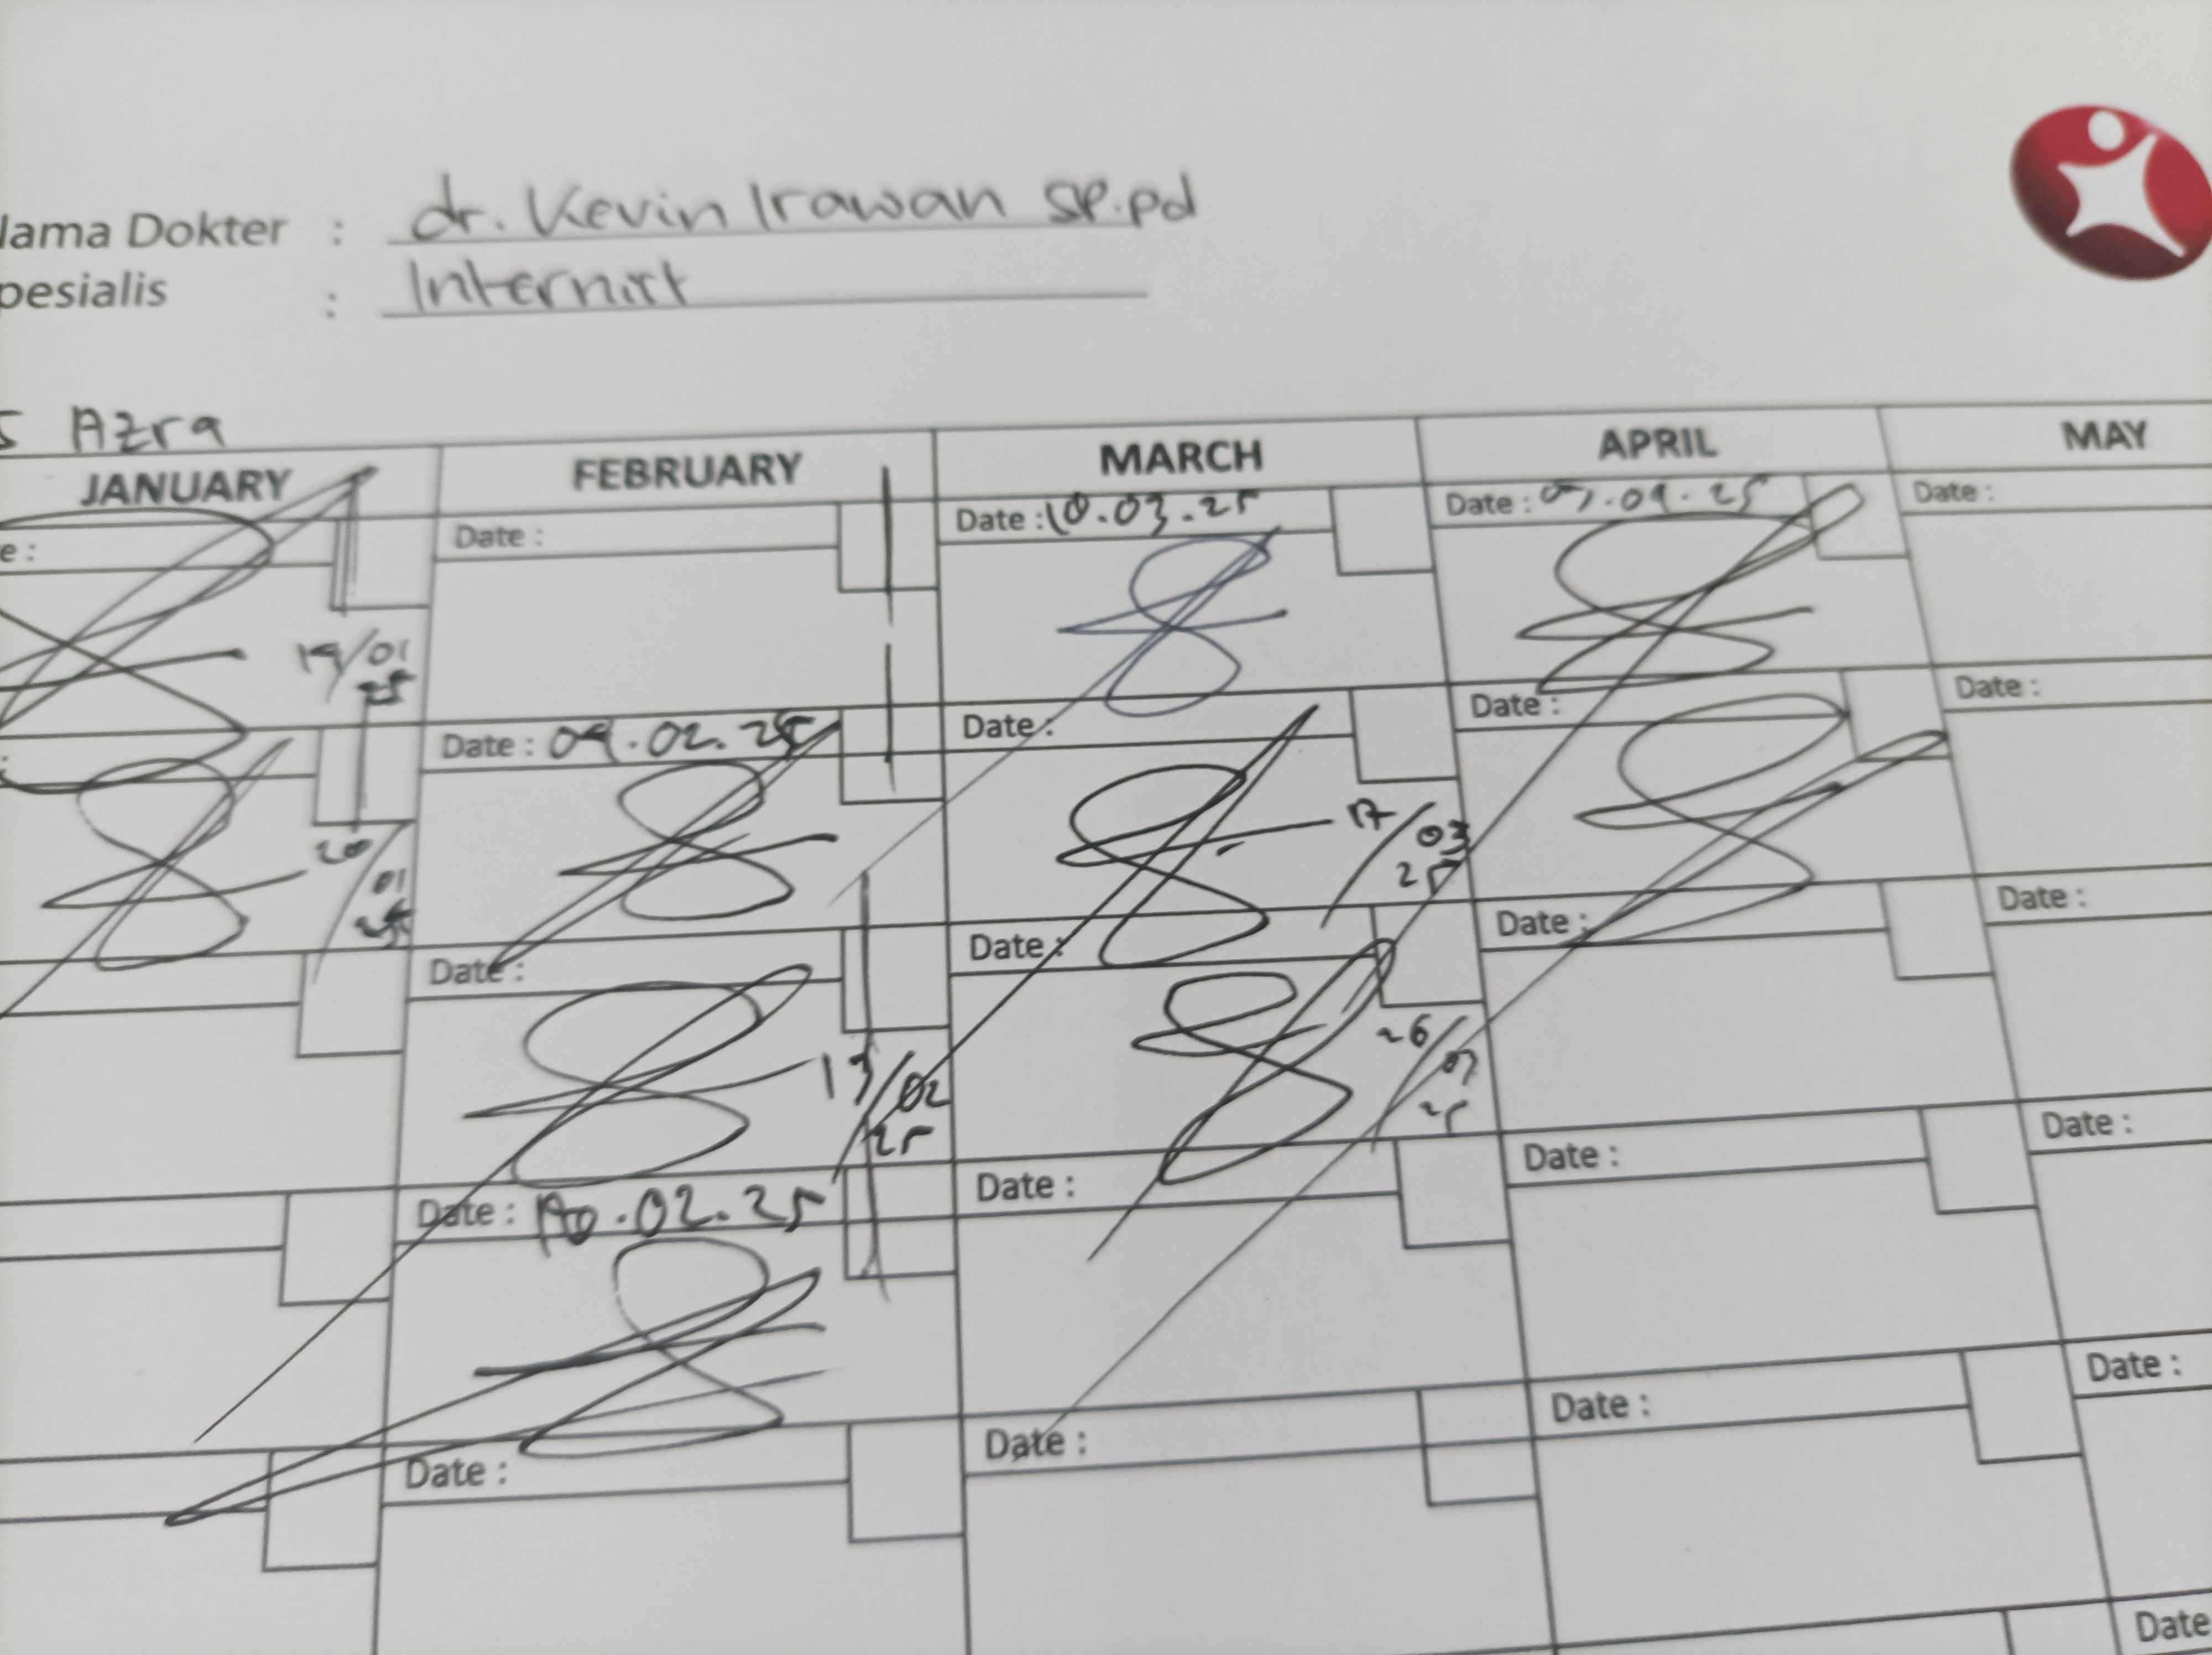 lama Dokter : dr. Kevin Irawan SP.pd
pesialis : Internist
S Azra
JANUARY FEBRUARY MARCH APRIL MAY
e : Date : Date : 10.03.25 Date : Date :
19/01 25
Date : 09.02.25 Date : Date : Date :
20/01 17/03 25
Date : Date : Date : Date :
13/02 25 26/03 25
Date : .02.25 Date : Date : Date :
Date : Date : Date : Date :
Date